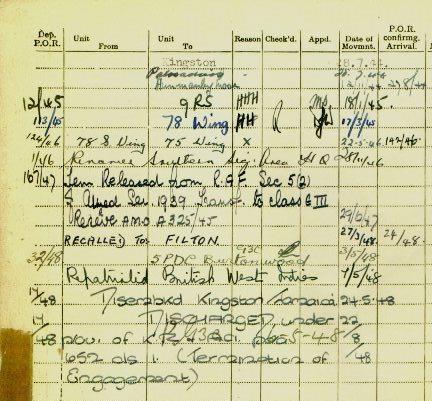 Dep. P.O.R. Unit From Unit To Reason Check'd. Appd. Date of Movmnt. P.O.R. confirmg. Arrival.
Kingston 28.7.44
Hunmanby Moor
9 RS HHH 18/1/45.
113/45 78 Wing HH R 17/3/45
126/46 78 S. Wing 75 Wing X 22-5-46 142/46.
1/46 Renamed Southern Sig. Area H Q
167/47 Tem Released from R.A.F. Sec 5(2)
& Ser. 1939 Transf. to class G III
Reserve AMO A325/45 29/6/47
RECALLED TO: FILTON. 27/3/48 24/48.
32/48 5 PDC Burtonwood 3/5/48
Repatriated British West Indies 7/5/48
17/48 Disembkd Kingston Jamaica 24.5.48
17/48 DISCHARGED under 22/8/48
prov. of K.R & A.C.I. para
652 cls 1. (Termination of
Engagement)